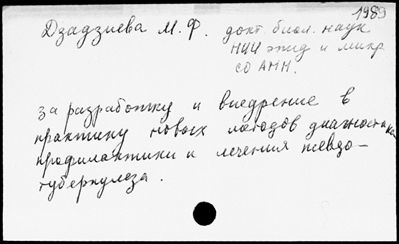 1989
Дзадзиева М. Ф. докт. биол. наук
НЦ эпид и микр
СО АМН.
за разработку и внедрение в
практику новых методов диагностики
профилактики и лечения псевдо-
туберкулеза.